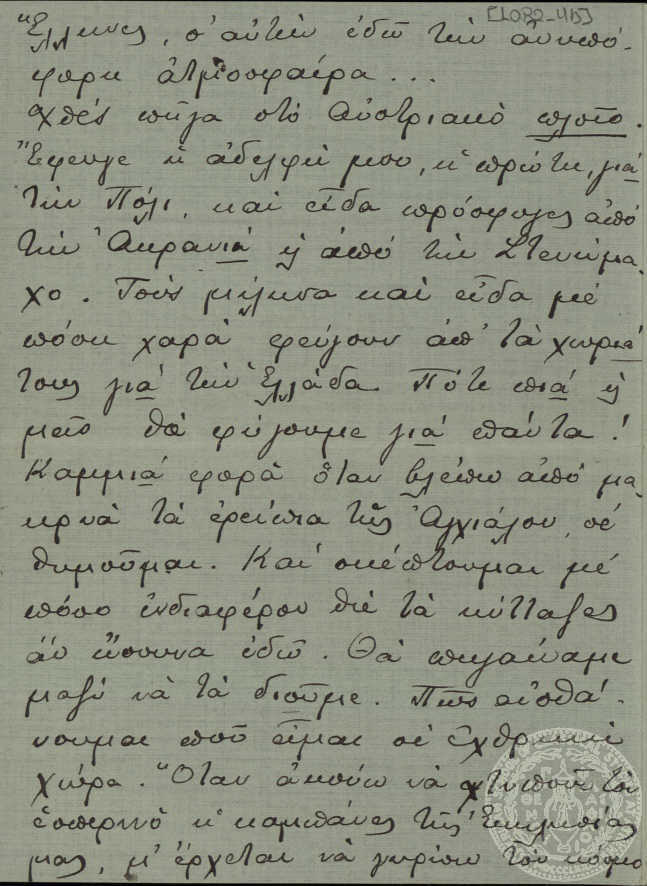 [LOP2_45]
Ἕλληνες, σ' αὐτὴν ἐδῶ τὴν ἀνυπό-
φορη ἀτμοσφαίρα...
Χθὲς πῆγα στὸ Αὐστριακὸ πλοῖο.
Ἔφευγε ἡ ἀδελφή μου, ἡ πρώτη, γιὰ
τὴν Πόλι, καὶ εἶδα πρόσφυγες ἀπὸ
τὴν Ἀκρανιά ἢ ἀπὸ τὴν Στενήμα-
χο. Τοὺς μίλησα καὶ εἶδα μὲ
πόση χαρὰ φεύγουν ἀπ' τὰ χωριά
τους γιὰ τὴν Ἑλλάδα. Πότε πιὰ ἢ
μεῖς θὰ φύγουμε γιὰ πάντα!
Καμμιὰ φορὰ ὅταν βλέπω ἀπὸ μα-
κρυὰ τὰ ἐρείπια τῆς Ἀγχιάλου, σὲ
θυμοῦμαι. Καὶ σκέπτουμαι μὲ
πόσο ἐνδιαφέρον θὲ τὰ κύτταζες
ἂν ἤσουνα ἐδῶ. Θὰ πηγαίναμε
μαζὺ νὰ τὰ διοῦμε. Πῶς αἰσθά-
νουμαι ποῦ εἶμαι σὲ ἐχθρικὴ
χώρα. Ὅταν ἀκούω νὰ χτυποῦν τὸν
ἑσπερινὸ ἡ καμπάνες τῆς Ἐκκλησίας
μας, μ' ἔρχεται νὰ γυρίσω τὸν κόσμο